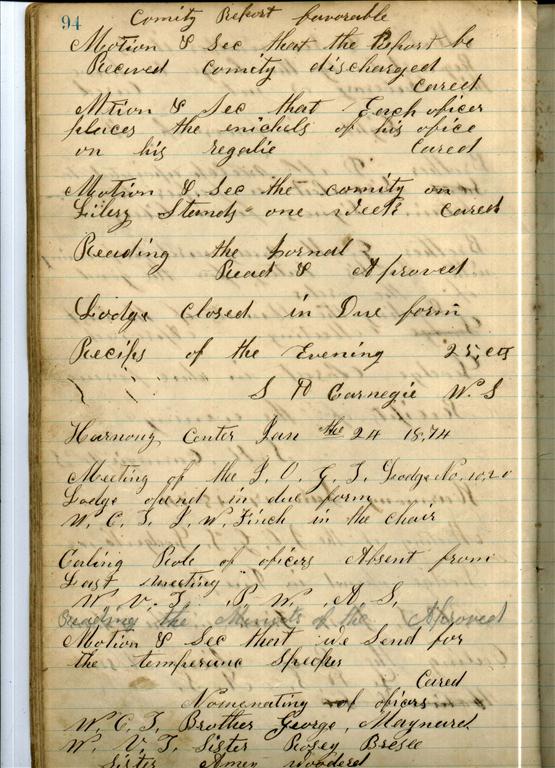 94
Comity Report favorable
Motion & Sec that the Report be
Recieved comity discharged
Cared
Mtion & Sec that Each oficer
places the inichels of his ofice
on his regalie Cared
Motion & Sec the comity on
Stands one week Cared
Reading the Jornal
Read & Aproved
Lodge Closed in Due form
Recips of the Evening 25 cts
S R Carnegie W. S
Harmony Center Jan the 24 1874
Meeting of the I. O. G. T. Lodge No. 1020
Lodge opend in due form
W. C. T. J. W. Finch in the chair
Caling Role of oficers Absent from
Last meeting
W. V. T. P. W. A. S.
Reading the Minuts of the Aproved
Motion & Sec that we Send for
the temperanc Speaker
Cared
Nominating of oficers
W. C. T. Brother George, Maynard
W. V. T. Sister Rosey Bresee
Sister